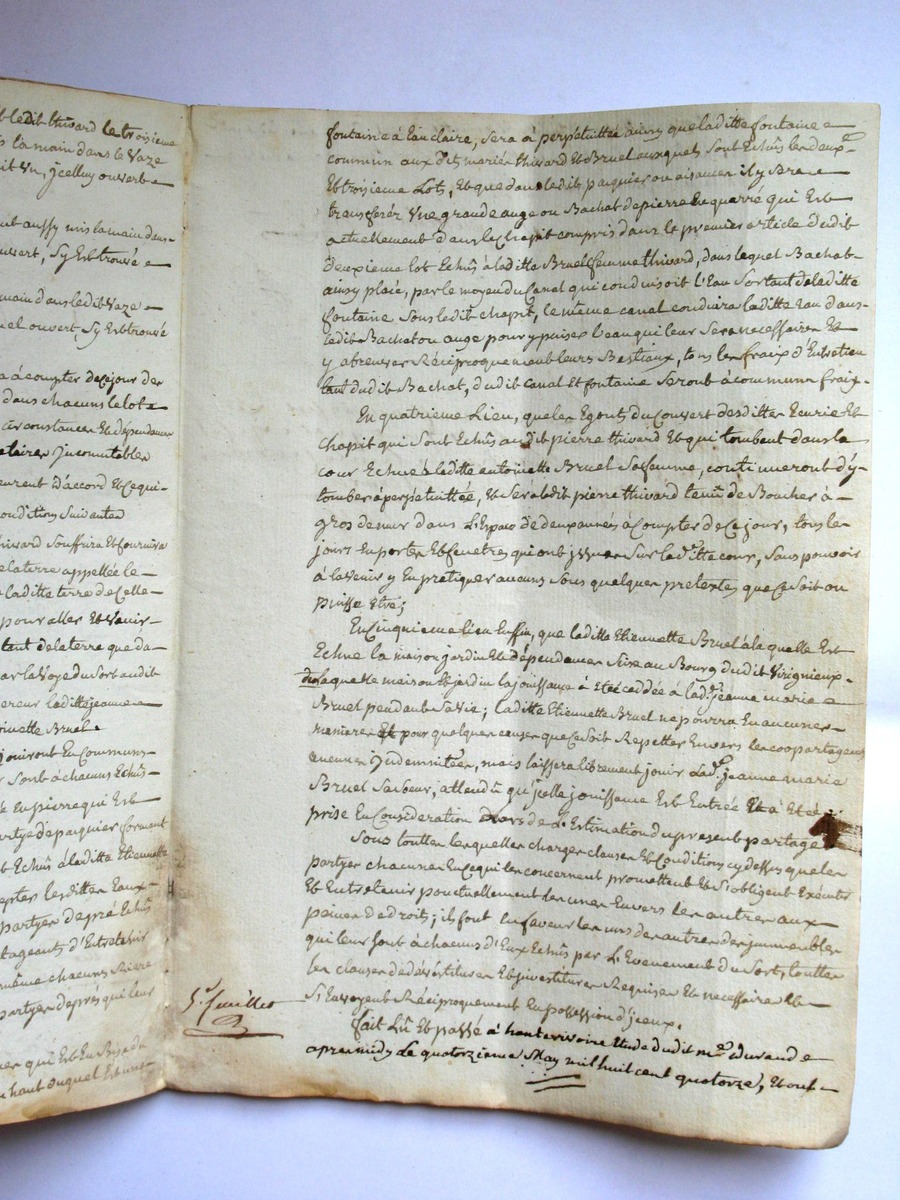 b ledit thivard le troisieme
la main dans le Vaze
it Vu, jcelluy ouvert
aussy mis la main dans
ouvert, Sy Est trouvé
main dans ledit Vaze
uel ouvert, Sy Est trouvé
a à compter de Ce jour des
dans chacuns le lot
circonstances Et dépendances
D'accord Et Ce qui
onditions Suivantes
hivard Souffrira Et fournira
la terre appellée le
laditte terre de Celle
pour aller Et Venir
tant de la terre que da
ar la Voye du Sort audit
laditte jeanne
Bruel
jouiront En Communs
Sont à chacuns Echûs
En pierre qui Est
artye de paquier formant
t Echûs à laditte Etiennette
lesdittes Eaux
partyes de pré Echûs
tageants d'Entretenir
même chacuns Riere
partyes de prés qui leur
qui Est En Bize du
haut duquel Est une
5e. feuillet
fontaine à Eau claire, Sera à perpetuittée ainsy que laditte fontaine
commun aux dits mariés thivard Et Bruel auxquels Sont Echûs les deuxe.
Et troisieme Lots, Et que dans ledit paquier ou aisances il y Sera
transferéz Une grande auge ou Bachat de pierre En quarré qui Est
actuellement dans le Chapit compris dans le premier article dudit
deuxieme lot Echûs à laditte Bruel femme thivard, dans lequel Bachat
ainsy placé, par le moyen du Canal qui conduisoit l'Eau Sortant de laditte
fontaine Sous ledit chapit, le même canal conduira laditte Eau dans
ledit Bachat ou auge pour y puiser l'eau qui leur Sera necessaire Et
y abreuver Réciproquement leurs Bestiaux, tous les fraix d'Entretien
tant dudit Bachat, dudit Canal Et fontaine Seront à communs fraix.
En quatrieme Lieu, que les Egouts du Couvert desdittes Ecurie Et
chapit qui Sont Echûs audit pierre thivard Et qui tombent dans la
cour Echue à laditte antoinette Bruel Sa femme, continueront d'y
tomber à perpetuittée, Et Sera ledit pierre thivard tenû de Boucher à
gros de mur dans L'Espace de deux années à Compter de Ce jour, tous les
jours En portes Et fenetres qui ont jssues Sur laditte cour, Sans pouvoir
à l'avenir y En pratiquer aucuns Sous quelques pretextes que Ce Soit ou
puisse Etre;
En Cinquieme lieu Enfin, que laditte Etiennette Bruel à la quelle Est
Echue la maison jardin Et dépendances Sise au Bourg dudit Virignieux
de laquelle maison Et jardin la jouissance à Etée ceddée à lade. jeanne marie
Bruel pendant Sa Vie; laditte Etiennette Bruel ne pourra En aucunes
manieres Et pour quelques causes que Ce Soit Repetter Envers les coopartageants
aucunes jndemnittées, mais laissera librement jouir Lade. jeanne marie
Bruel Sa Soeur, attendû qu'jcelle jouissance Est Entrée Et à Etée
prise En Considération Lors de L'Estimation du present partage
Sous touttes lesquelles charges clauses Et Conditions cy dessus que les
partyes chacunes En Ce qui les concernent promettent Et S'obligent Exécuter
Et Entretenir ponctuellement les unes Envers les autres aux
peines de droits; ils font En faveur les uns des autres des jmmeubles
qui leur Sont à chacuns d'Eux Echûs par L'Evenement du Sort, touttes
les clauses de dévestiture Et jnvestiture Requises Et necessaire Et
S'Envoyent Réciproquement En possession d'jceux.
fait Lû Et passé à hauterivoire Etude dudit me. durand
apres midy Le quatorzieme May mil huit cent quatorze, Et ont